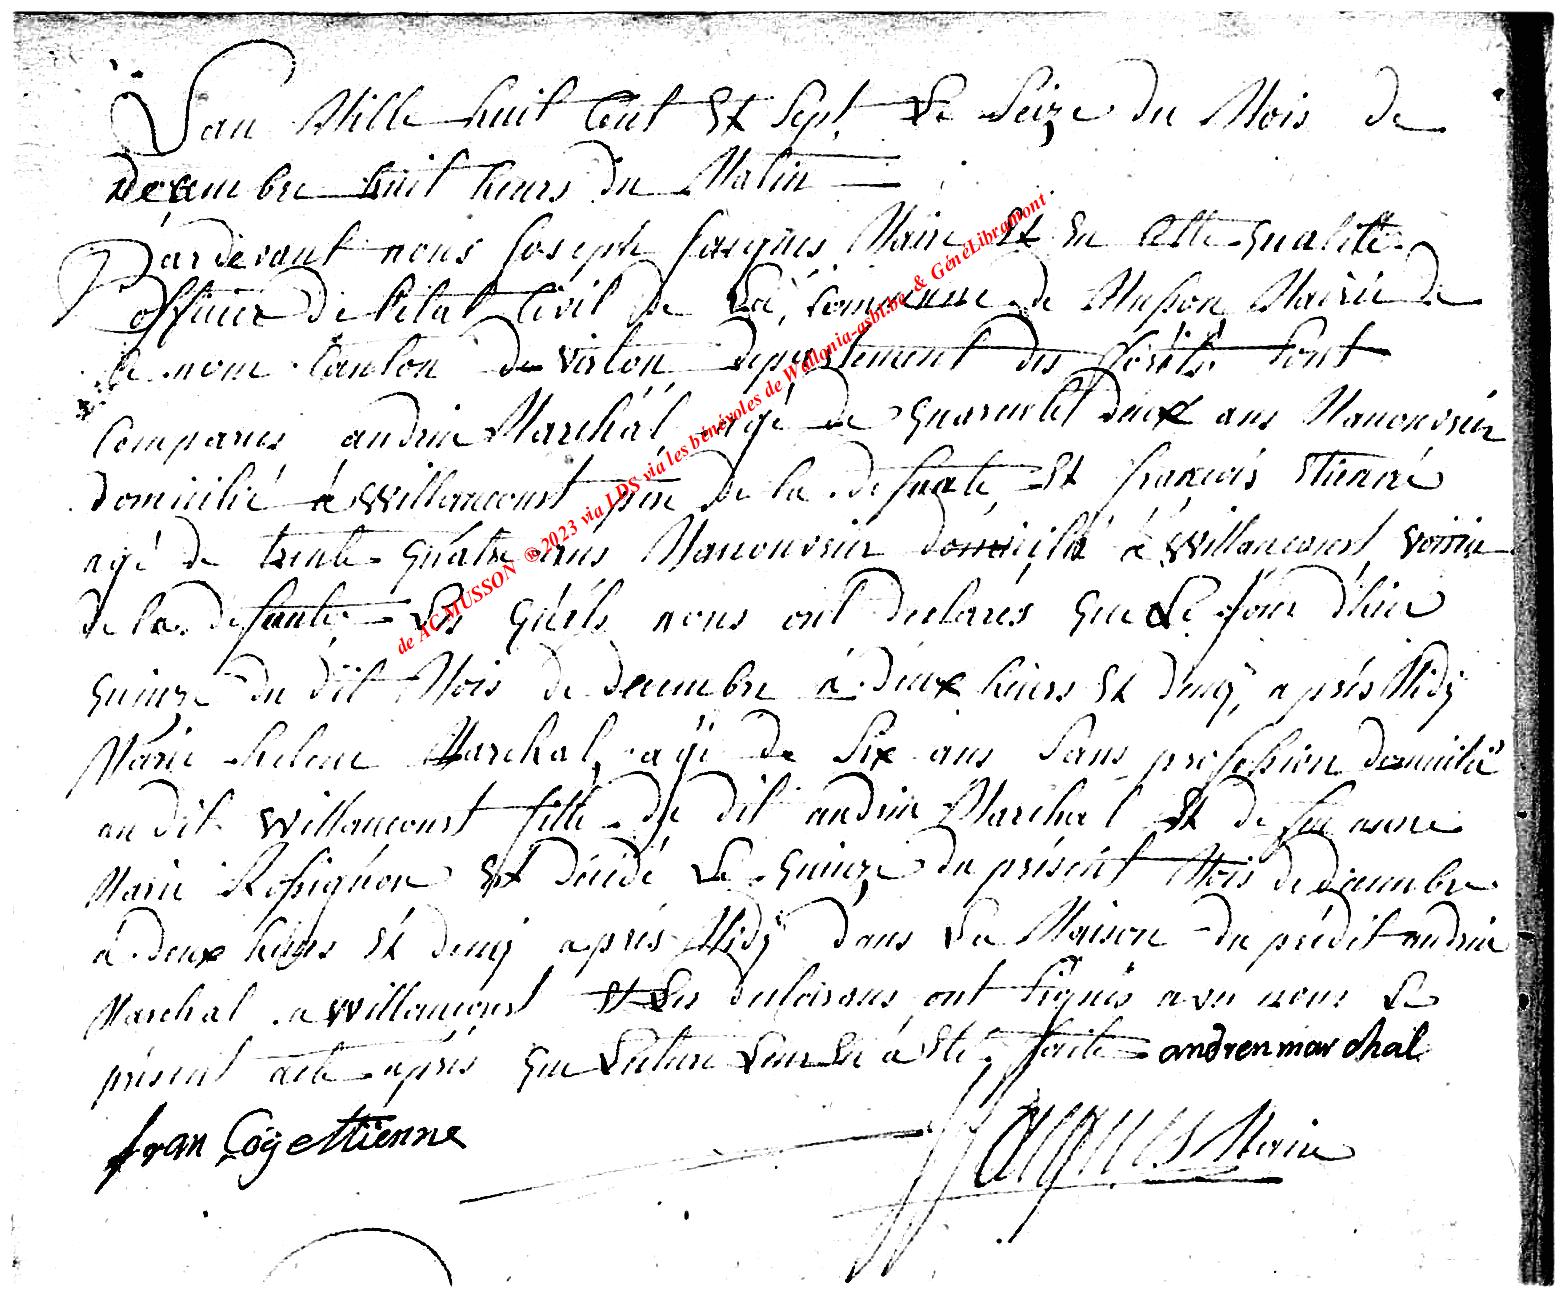 Lan Mille huit Cent Et Sept Le Seize du Mois de
decembre huit heurs du Matin
Pardevant nous Joseph Jacques Maire Et En Cette qualitté
officier de l'état Civil de La Commune de Musson Mairie de
ce nom Canton de virton departement des forêts sont
Comparus andrien Marchal agé de quarnte deux ans Manouvrier
domicilié à Willancourt pere de la defunte Et françois Etienne
agé de trente quatre ans Manouvrier domicilié à Willancourt voisin
de la defunte Les quels nous ont declarés que Le jour d'hier
quinze du dit Mois de decembre à deux heurs Et demy après Midy
Marie helene Marchal agé de Six ans Sans profession domicilié
au dit Willancourt fille du dit andrien Marchal Et de feu anne
Marie Rossignon Est décédé Le quinze du présent Mois de decembre
à deux heurs Et demy après Midy dans La Maison du prédit andrien
Marchal a Willancourt Et Les declarans ont signés avec nous Le
présent acte après que Lecture Leur En à Eté faite andren marchal
fran Coÿ ettienne JJacques Maire
de AC MUSSON ® 2023 via LDS via les bénévoles de Wallonia-asbl.be & GénéLibramont